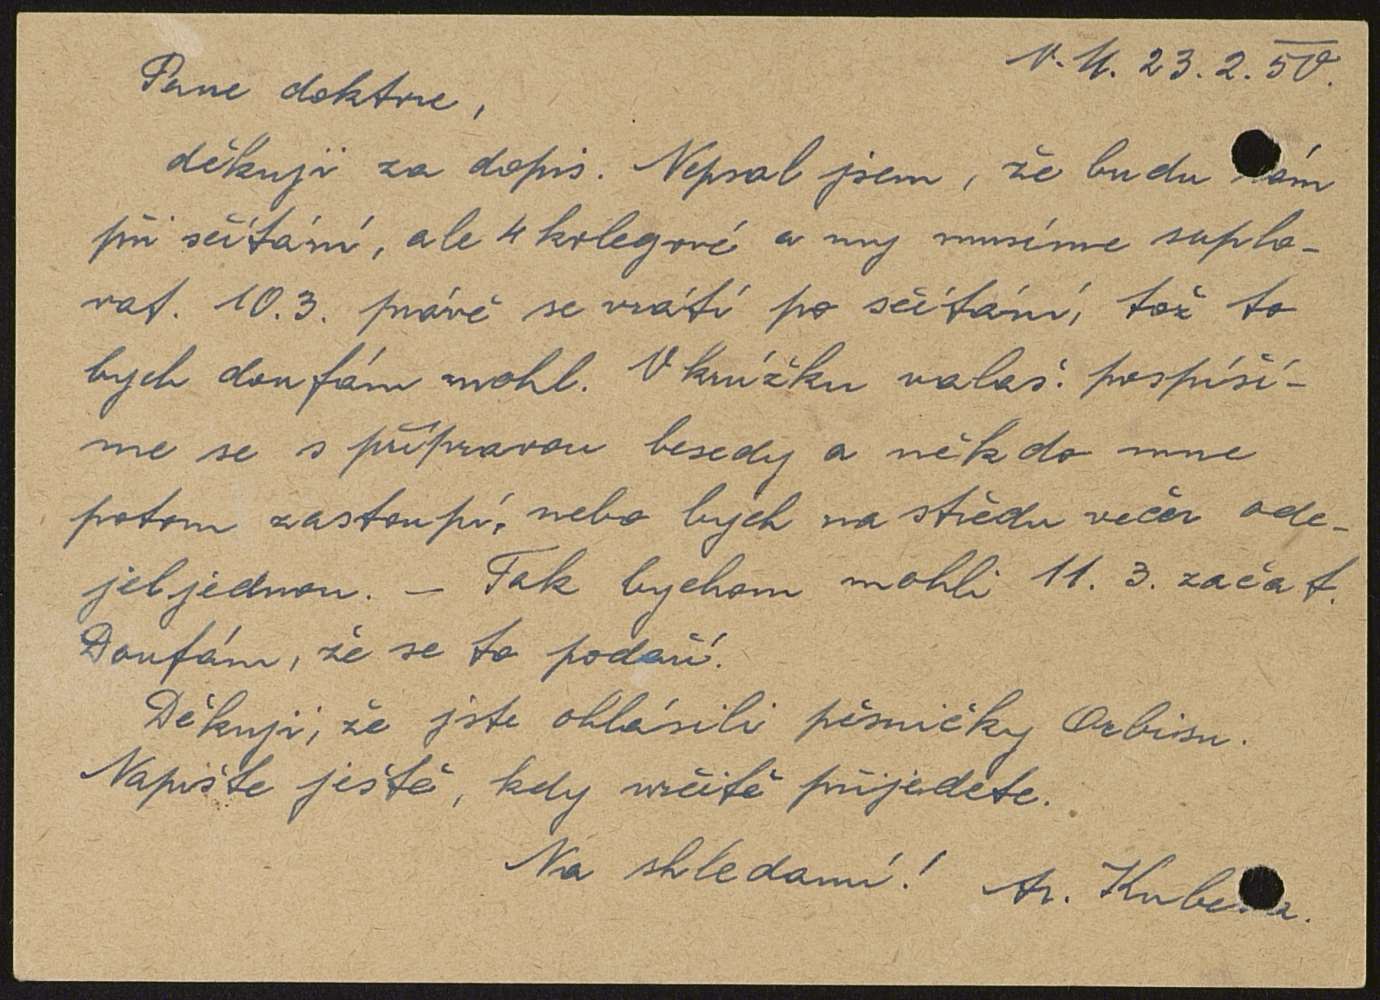 V. M. 23. 2. 50.
Pane doktore,
děkuji za dopis. Nepsal jsem, že budu
při sčítání, ale 4 kolegové a my musíme suplo-
vat. 10. 3. právě se vrátí po sčítání, tož to
bych doufám mohl. V krúžku valaš. pospíší-
me se s přípravou besedy a někdo mne
potom zastoupí, nebo bych na středu večer ode-
jel jednou. — Tak bychom mohli 11. 3. začat.
Doufám, že se to podaří.
Děkuji, že jste ohlásili pěsničky Orbisu.
Napište ještě, kdy určitě přijedete.
Na shledanú! Ar.